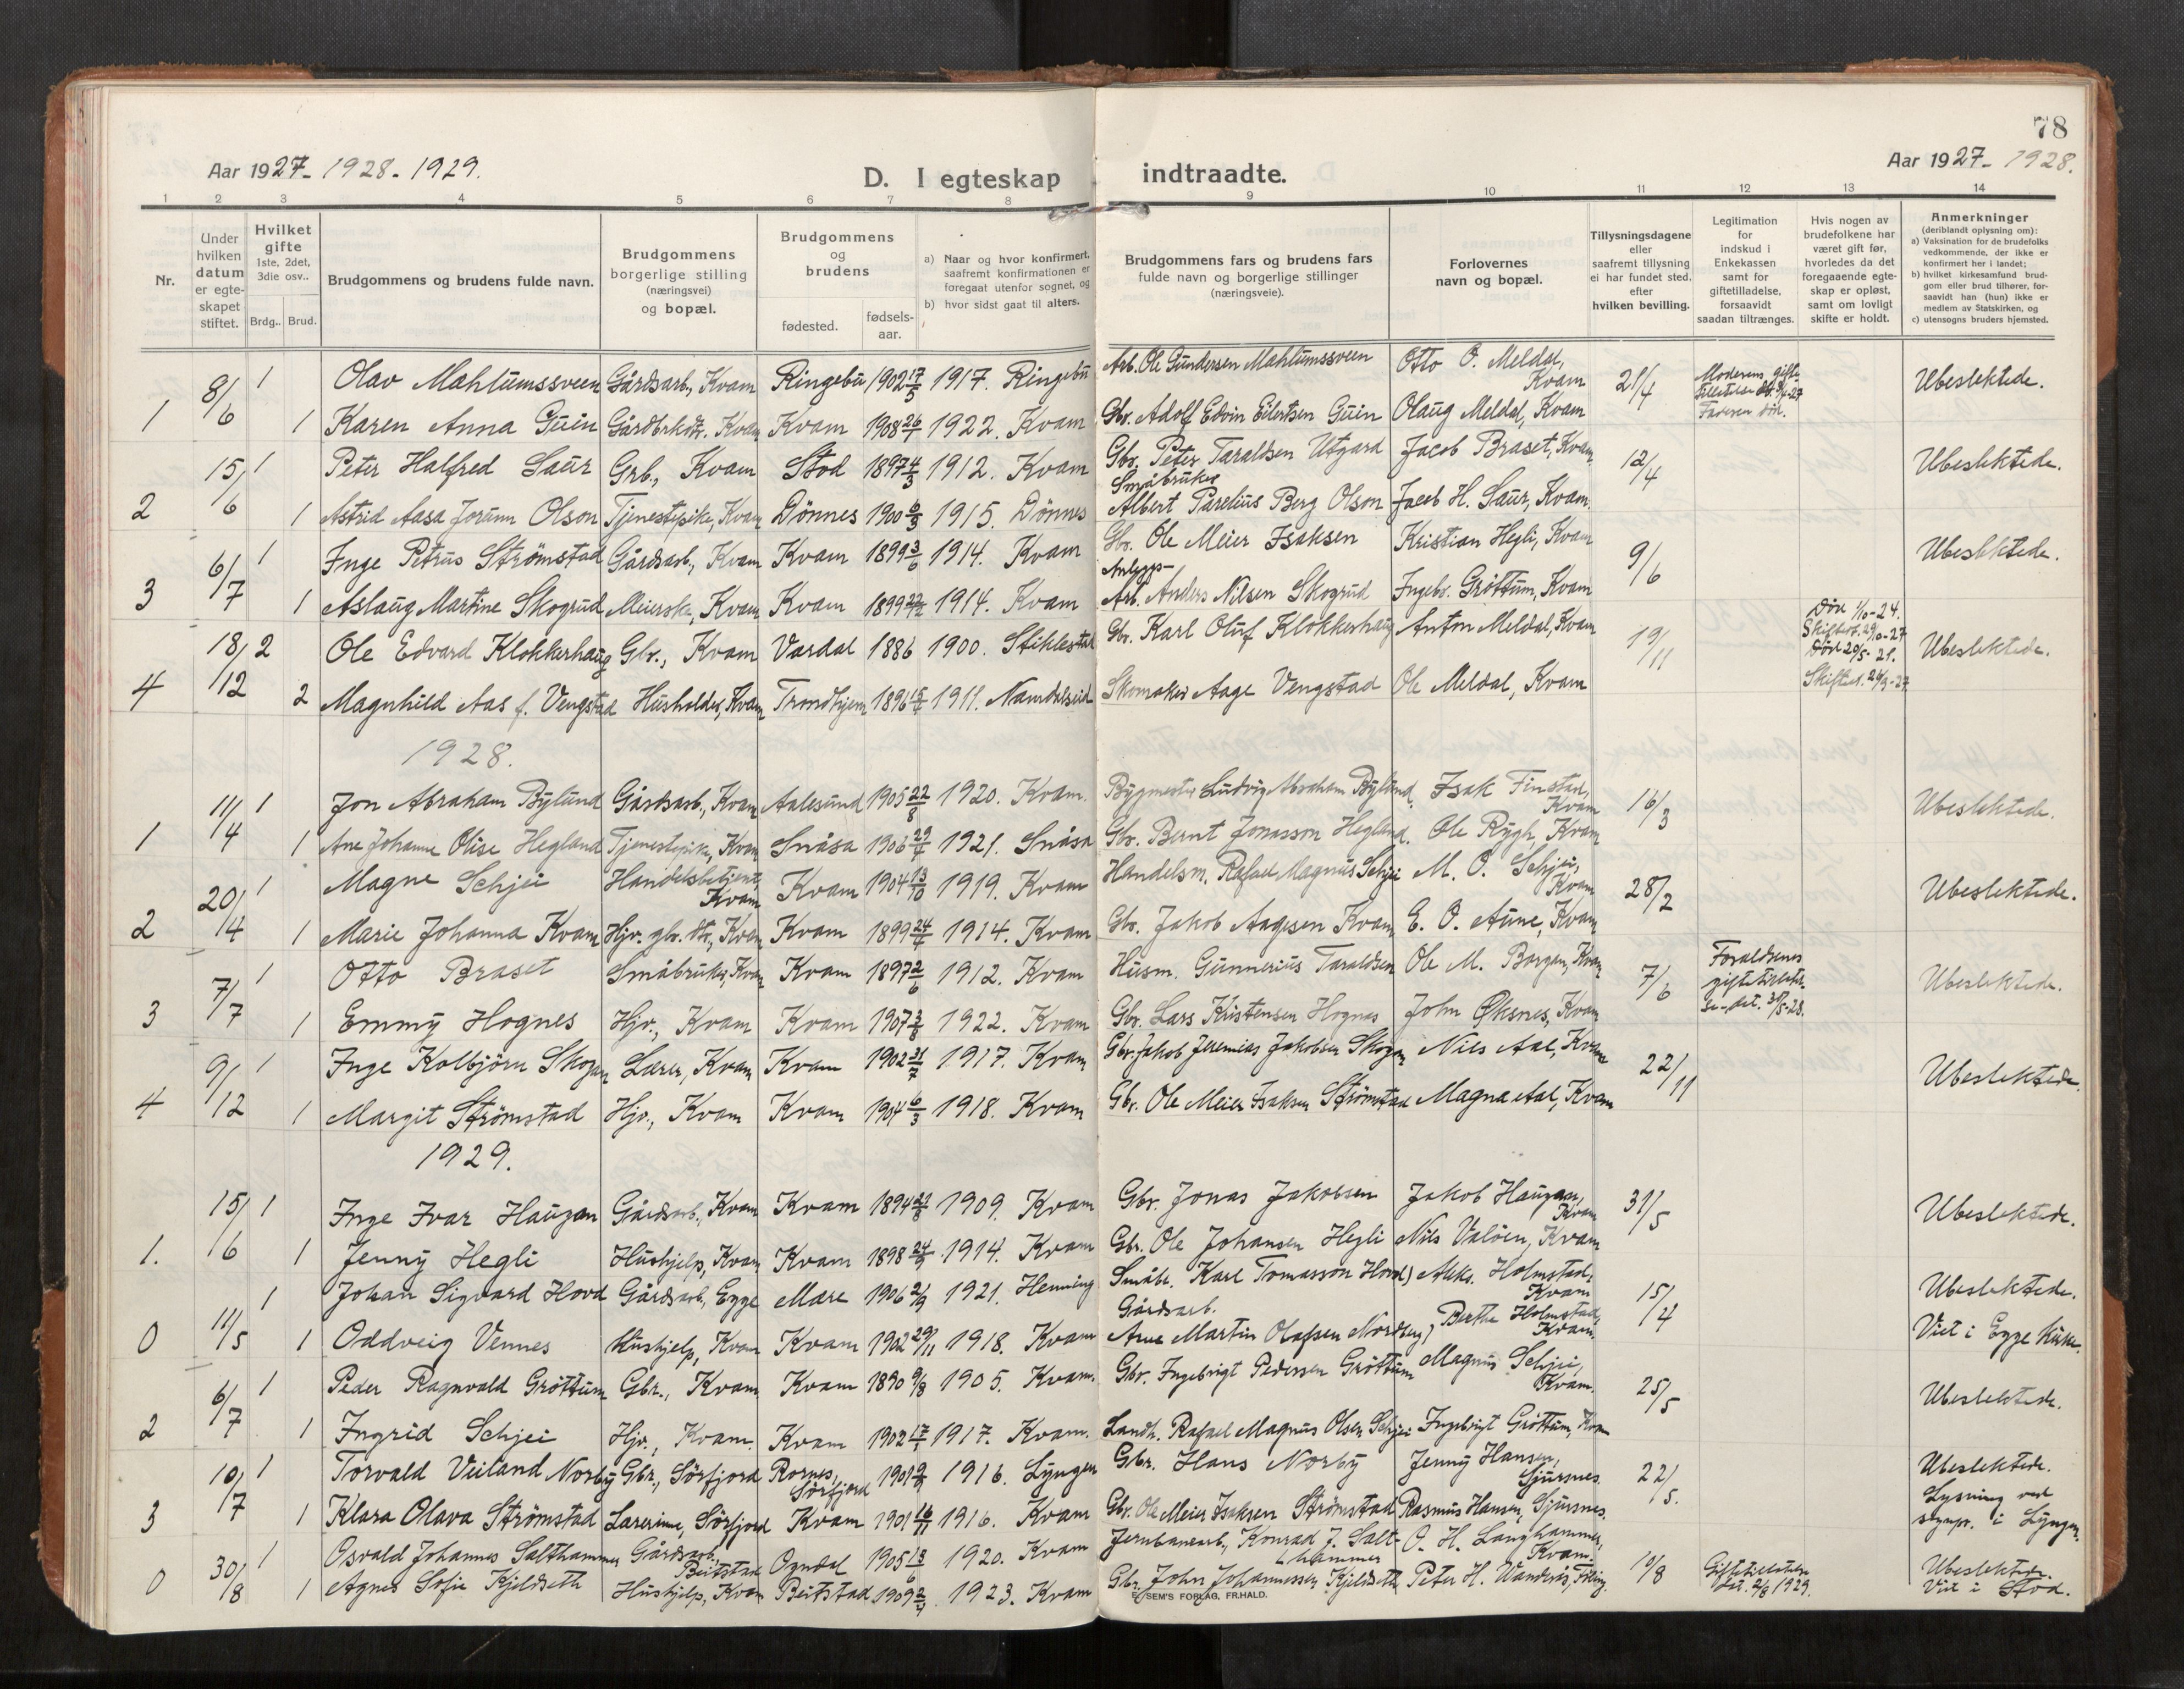 78
Aar 1927- 1928- 1929.
D. I egteskap indtraadte.
Aar 1927- 1928.
1 2 3 4 5 6 7 8 9 10 11 12 13 14
Nr.
Under hvilken datum er egteskapet stiftet.
Hvilket gifte 1ste, 2det, 3die osv..
Brdg.. Brud.
Brudgommens og brudens fulde navn.
Brudgommens borgerlige stilling (næringsvei) og bopæl.
Brudgommens og brudens
fødested. fødsels-aar.
a) Naar og hvor konfirmert, saafremt konfirmationen er foregaat utenfor sognet, og
b) hvor sidst gaat til alters.
Brudgommens fars og brudens fars fulde navn og borgerlige stillinger (næringsveie).
Forlovernes navn og bopæl.
Tillysningsdagene eller saafremt tillysning ei har fundet sted, efter hvilken bevilling.
Legitimation for indskud i Enkekassen samt for giftetilladelse, forsaavidt saadan tiltrænges.
Hvis nogen av brudefolkene har været gift før, hvorledes da det foregaaende egteskap er opløst, samt om lovligt skifte er holdt.
Anmerkninger (deriblandt oplysning om): a) Vaksination for de brudefolks vedkommende, der ikke er konfirmert her i landet; b) hvilket kirkesamfund brudgom eller brud tilhører, forsaavidt han (hun) ikke er medlem av Statskirken, og c) utensogns bruders hjemsted.
8/6 1 Olav Mahlumssveen Gårdsarb., Kvam Ringebu 1902 17/5 1917. Ringebu Arb. Ole Gundersen Mahlumssveen Otto O. Meldal, Kvam 21/4 Moderens gifte Faderen død. Ubeslektede.
1 1 Karen Anna Guin Kvam Kvam 1908 26/1 1922. Kvam Gbr. Adolf Edvin Eilertsen Guin Olaug Meldal, Kvam
15/6 1 Peter Halfred Saur Grb., Kvam Stod 1897 4/3 1912. Kvam Gbr. Peter Taraldsen Utgard Jacob Braset, Kvam 12/4 Ubeslektede.
2 1 Astrid Aasa Jorunn Olson Tjenestepike, Kvam Dönnes 1900 6/3 1915. Dönnes Småbruker Albert Parelius Berg Olson Jacob H. Saur, Kvam.
6/7 1 Inge Petrus Strömstad Gårdsarb., Kvam Kvam 1899 3/6 1914. Kvam Gbr. Ole Meier Isaksen Kristian Hegli, Kvam 9/6 Ubeslektede.
3 1 Aslaug Martine Skogrud Meierske, Kvam Kvam 1899 22/12 1914. Kvam Anlegs- Arb. Anders Nilsen Skogrud Ingebr. Gröttum, Kvam
18/12 2 Ole Edvard Klokkerhaug Gbr., Kvam Værdal 1886 1900. Stiklestad Gbr. Karl Oluf Klokkerhaug Anton Meldal, Kvam 19/11 Død 1/10-24. Skifteat. 29/10-27 Død 20/5-21. Skifteat. 24/9-27 Ubeslektede.
4 2 Magnhild Aas f. Vengstad Husholder, Kvam Trondhjem 1896 15/7 1911. Namdalseid Skomaker Aage Vengstad Ole Meldal, Kvam
1928.
11/4 1 Jon Abraham Bylund Gårdsarb., Kvam Aalesund 1905 22/8 1920. Kvam. Bygmester Ludvig Abraham Bylund. Isak Finstad, Kvam 16/3 Ubeslektede.
1 1 Ane Johanne Olise Hegland Tjenestepike, Kvam Snåsa 1906 29/7 1921. Snåsa Gbr. Bernt Jonasson Hegland. Ole Rygh, Kvam
20/4 1 Magne Schjei Handelsbetjent, Kvam Kvam 1904 13/10 1919. Kvam Handelsm. Rafael Magnus Schjei M. O. Schjei, Kvam 28/2 Ubeslektede.
2 1 Marie Johanna Kvam Hjv. gbr. dtr., Kvam Kvam 1899 24/7 1914. Kvam Gbr. Jakob Aagesen Kvam E. O. Aune, Kvam
7/7 1 Otto Braset Småbruker, Kvam Kvam 1897 2/6 1912. Kvam Husm. Gunnerius Taraldsen Ole M. Borgen, Kvam 7/6 Foraldrenes giftetiladelse dat. 31/5-28. Ubeslektede.
3 1 Emmy Hognes Hjv., Kvam Kvam 1907 3/8 1922. Kvam Gbr. Lars Kristensen Hognes John Øksnes, Kvam
9/12 1 Inge Kolbjörn Skogan Lærer, Kvam Kvam 1902 31/7 1917. Kvam Gbr. Jakob Jeremias Jakobsen Skogan Nils Aal, Kvam 22/11 Ubeslektede.
4 1 Margit Strömstad Hjv., Kvam Kvam 1904 6/3 1918. Kvam Gbr. Ole Meier Isaksen Strömstad Magna Aal, Kvam
1929.
15/6 1 Inge Ivar Haugan Gårdsarb., Kvam Kvam 1894 27/8 1909. Kvam Gbr. Jonas Jakobsen Jakob Haugan, Kvam 31/5 Ubeslektede.
1. 1 Jenny Hegli Hushjelp, Kvam Kvam 1898 24/9 1914. Kvam Gbr. Ole Johansen Hegli Nils Valöen, Kvam
11/5 1 Johan Sigvard Hovd Gårdsarb, Egge Mære 1906 2/9 1921. Henning Småbr. Karl Tomasson Hovd Aleks. Holmstad, Kvam 15/4 Ubeslektede.
0 1 Oddveig Vennes Hushjelp, Kvam Kvam 1902 29/11 1918. Kvam Gårdsarb. Arne Martin Olafsen Nordberg Berthe Holmstad, Kvam. Viet i Egge kirke.
6/7 1 Peder Ragnvald Gröttum Gbr., Kvam Kvam 1890 9/8 1905. Kvam. Gbr. Ingebrigt Pedersen Gröttum Magnus Schjei, Kvam. 25/5 Ubeslektede.
2 1 Ingrid Schjei Hjv., Kvam. Kvam 1902 17/1 1917. Kvam. Landh. Rafael Magnus Olsen Schjei Ingebrigt Gröttum, Kvam
10/7 1 Torvald Veiland Norby Gbr., Sörfjord Rornes, Sörfjord 1901 1916. Lyngen Gbr. Hans Norby Jenny Hansen, Sjursnes. 22/5. Ubeslektede. Lysning ved sognepr. i Lyngen.
3 1 Klara Olava Strömstad Lærerinne, Sörfjord Kvam 1901 16/11 1916. Kvam Gbr. Ole Meier Isaksen Strömstad Rasmus Hansen, Sjursnes.
30/8 1 Osvald Johannes Salthammer Gårdsarb., Beitstad Ogndal 1905 13/6 1920. Kvam Jernbanearb., Konrad J. Salthammer O. H. Langhammer, Kvam. 10/8 Giftetiladelse dat. 2/8 1929. Ubeslektede. Viet i Stod.
0 1 Agnes Sofie Kjeldseth Hushjelp, Kvam Beitstad 1909 1923. Kvam Gbr. John Johannessen Kjeldseth Peter H. Wanderås, Følling.
E. SEM'S FORLAG, FR.HALD.